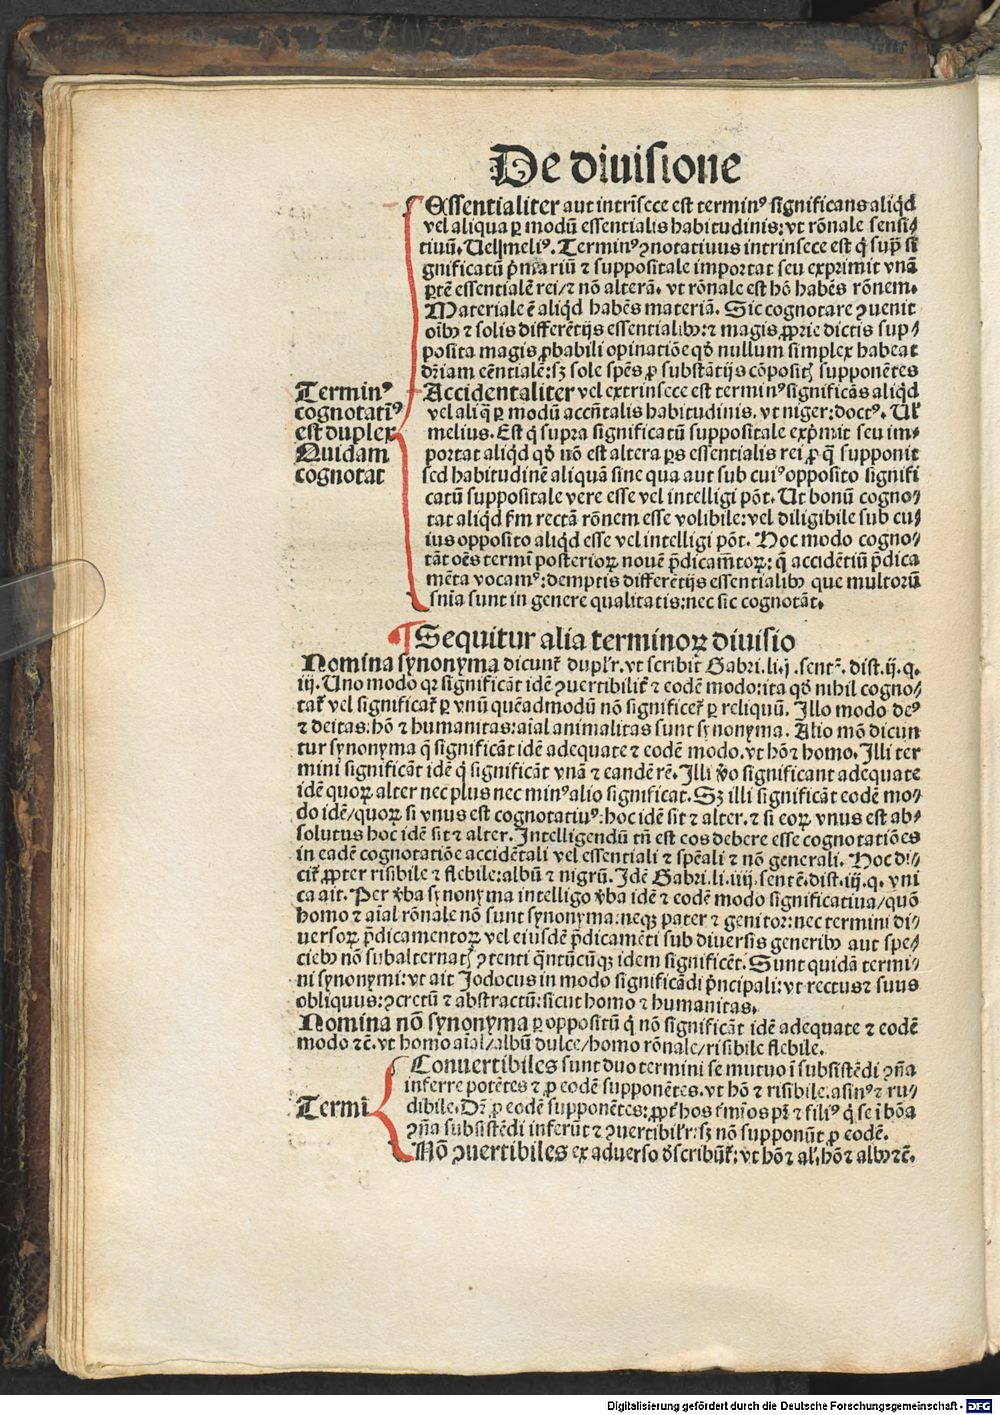 De diuisione
Essentialiter aut intrĩsece est terminꝰ significans aliqd̛
vel aliqua ꝑ modũ essentialis habitudinis: vt rõnale sensi⸗
tiuũ. Uel meliꝰ. Terminꝰ ꝯnotatiuus intrinsece est q̇ sup̃ si
gnificatũ p̃mariũ ⁊ suppositale importat seu exprimit vnã
ꝑtẽ essentialẽ rei/⁊ nõ alterã. vt rõnale est hõ habẽs rõnem.
Materiale ẽ aliqd̛ habẽs materiã. Sic cognotare ꝯuenit
oĩbꝫ ⁊ solis differẽtijs essentialibꝫ: ⁊ magis ꝓprie dictis sup⸗
posita magis ꝓbabili opinatiõe qd̛ nullum simplex habeat
dr̃iam eẽntialẽ: sꝫ sole spẽs ꝓ substãtijs cõpositꝭ supponẽtes
Terminꝰ
cognotatĩꝰ
est duplex
Quidam
cognotat
Accidentaliter vel extrinsece est terminꝰ significãs aliqd̛
vel aliq̃ ꝑ modũ accñtalis habitudinis. vt niger: doctꝰ. Ul̛
melius. Est q̇ supra significatũ suppositale exp̃mit seu im⸗
portat aliqd̛ qd̛ nõ est altera ꝑs essentialis rei ꝓ q̃ supponit
sed habitudinẽ aliquã sine qua aut sub cuiꝰ opposito signifi
catũ suppositale vere esse vel intelligi põt. Ut bonũ cogno⸗
tat aliqd̛ ẜm rectã rõnem esse volibile: vel diligibile sub cu⸗
ius opposito aliqd̛ esse vel intelligi põt. Hoc modo cogno⸗
tãt oẽs termĩ posterioꝝ nouẽ p̃dicam̃toꝝ: q̃ accidẽtiũ p̃dica
mẽta vocamꝰ: demptis differẽtijs essentialibꝫ que multorũ
snĩa sunt in genere qualitatis: nec sic cognotãt.
¶ Sequitur alia terminoꝝ diuisio
Nomina synonyma dicunt̃ dupl̛r. vt scribit Gabri. li. j. sentẽ. dist. ij. q.
iij. Uno modo qꝛ significãt idẽ ꝯuertibilit̃ ⁊ eodẽ modo: ita qd̛ nihil cogno⸗
tat̃ vel significat̃ ꝑ vnũ quẽadmodũ nõ significet̃ ꝑ reliquũ. Illo modo deꝰ
⁊ deitas: hõ ⁊ humanitas: aĩal animalitas sunt synonyma. Alio mõ dicun
tur synonyma q̃ significãt idẽ adequate ⁊ eodẽ modo. vt hõ ⁊ homo. Illi ter
mini significãt idẽ q̇ significãt vnã ⁊ eandẽ rẽ. Illi ṽo significant adequate
idẽ quoꝝ alter nec plus nec minꝰ alio significat. Sꝫ illi significãt eodẽ mo⸗
do idẽ/quoꝝ si vnus est cognotatiuꝰ: hoc idẽ sit ⁊ alter. ⁊ si eoꝝ vnus est ab⸗
solutus hoc idẽ sit ⁊ alter. Intelligendũ tñ est eos debere esse cognotatiões
in eadẽ cognotatiõe accidẽtali vel essentiali ⁊ spẽali ⁊ nõ generali. Hoc di⸗
cit̃ ꝓpter risibile ⁊ flebile: albũ ⁊ nigrũ. Idẽ Gabri. li. iiij. sentẽ. dist. iij. q. vni
ca ait. Per ṽba synonyma intelligo ṽba idẽ ⁊ eodẽ modo significatiua/quõ
homo ⁊ aĩal rõnale nõ sunt synonyma: neqꝫ pater ⁊ genitor: nec termini di⸗
uersoꝝ p̃dicamentoꝝ vel eiusdẽ p̃dicamẽti sub diuersis generibꝫ aut spe⸗
ciebꝫ nõ subalternatꝭ ꝯtenti q̃ntũcũqꝫ idem significẽt. Sunt quidã termi⸗
ni synonymi: vt ait Jodocus in modo significãdi p̃ncipali: vt rectus ⁊ suus
obliquus: ꝯcretũ ⁊ abstractũ: sicut homo ⁊ humanitas.
Nomina nõ synonyma ꝑ oppositũ q̇ nõ significãt idẽ adequate ⁊ eodẽ
modo ⁊c̃. vt homo aĩal/albũ dulce/homo rõnale/risibile flebile.
Termĩ
Conuertibiles sunt duo termini se mutuo ĩ subsistẽdi ꝯña
inferre potẽtes ⁊ ꝓ eodẽ supponẽtes. vt hõ ⁊ risibile. asinꝰ ⁊ ru⸗
dibile. Dr̃ ꝓ eodẽ supponẽtes: ꝓpt̃ hos t̃mĩos pr̃ ⁊ filiꝰ q̇ se ĩ bõa
ꝯñã subsistẽdi inferũt ⁊ ꝯuertibil̛r: sꝫ nõ supponũt ꝓ eodẽ.
Nõ ꝯuertibiles ex aduerso d̛scribũt̃: vt hõ ⁊ al̛. hõ ⁊ albꝫ ⁊c̃.
Digitalisierung gefördert durch die Deutsche Forschungsgemeinschaft - DFG